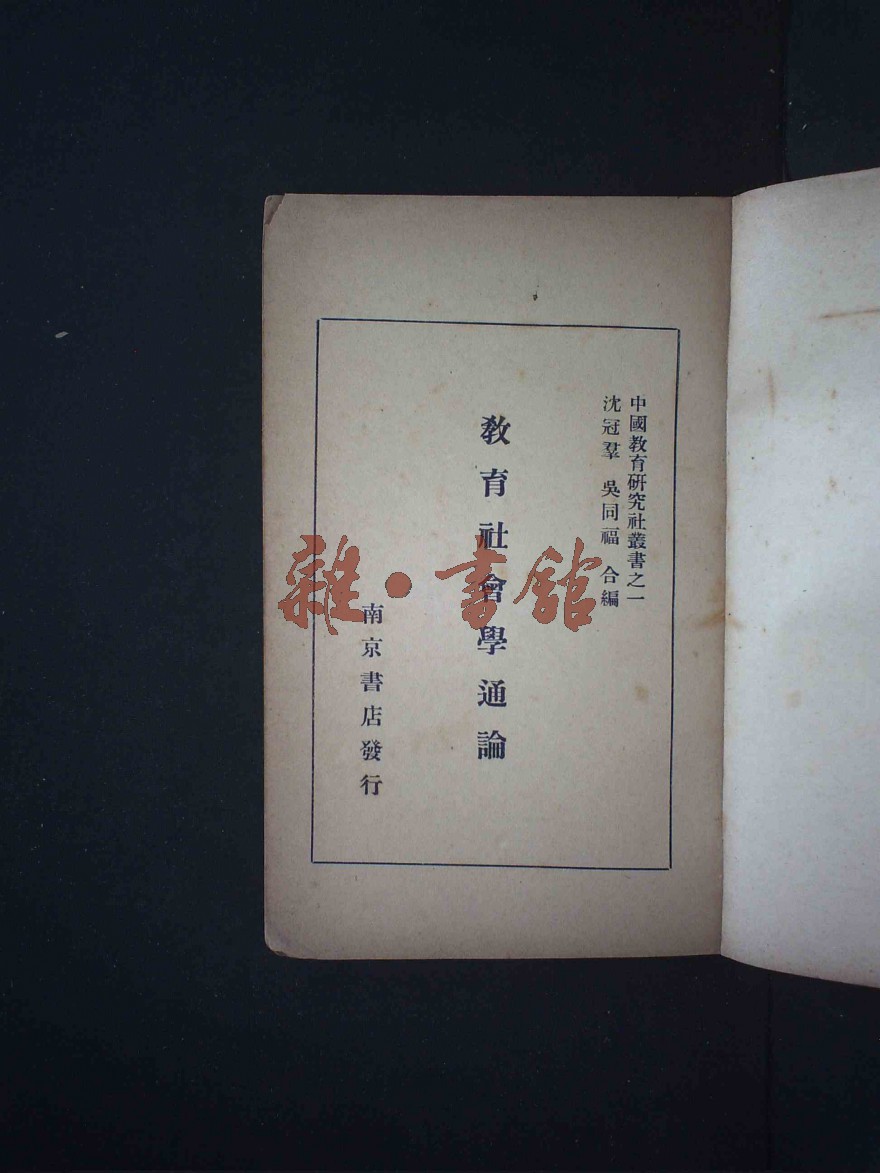 中國教育研究社叢書之一
沈冠羣 吳同福 合編
教育社會學通論
南京書店發行
雜·書館